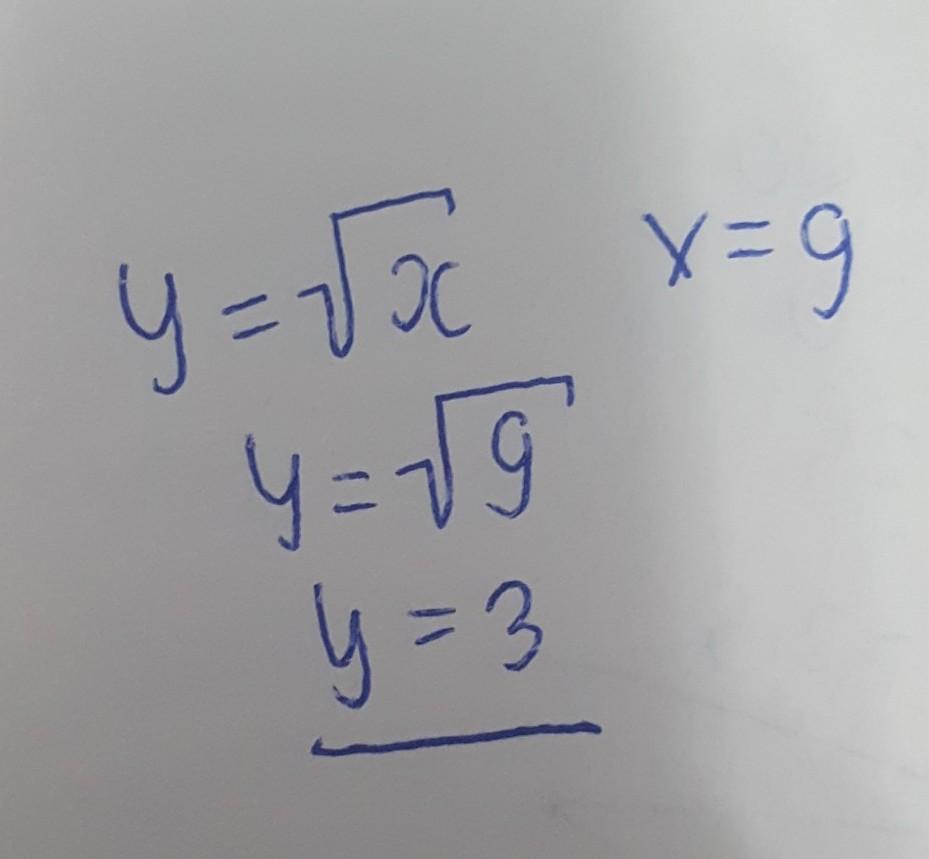 y = √x    x = 9
y = √9
y = 3